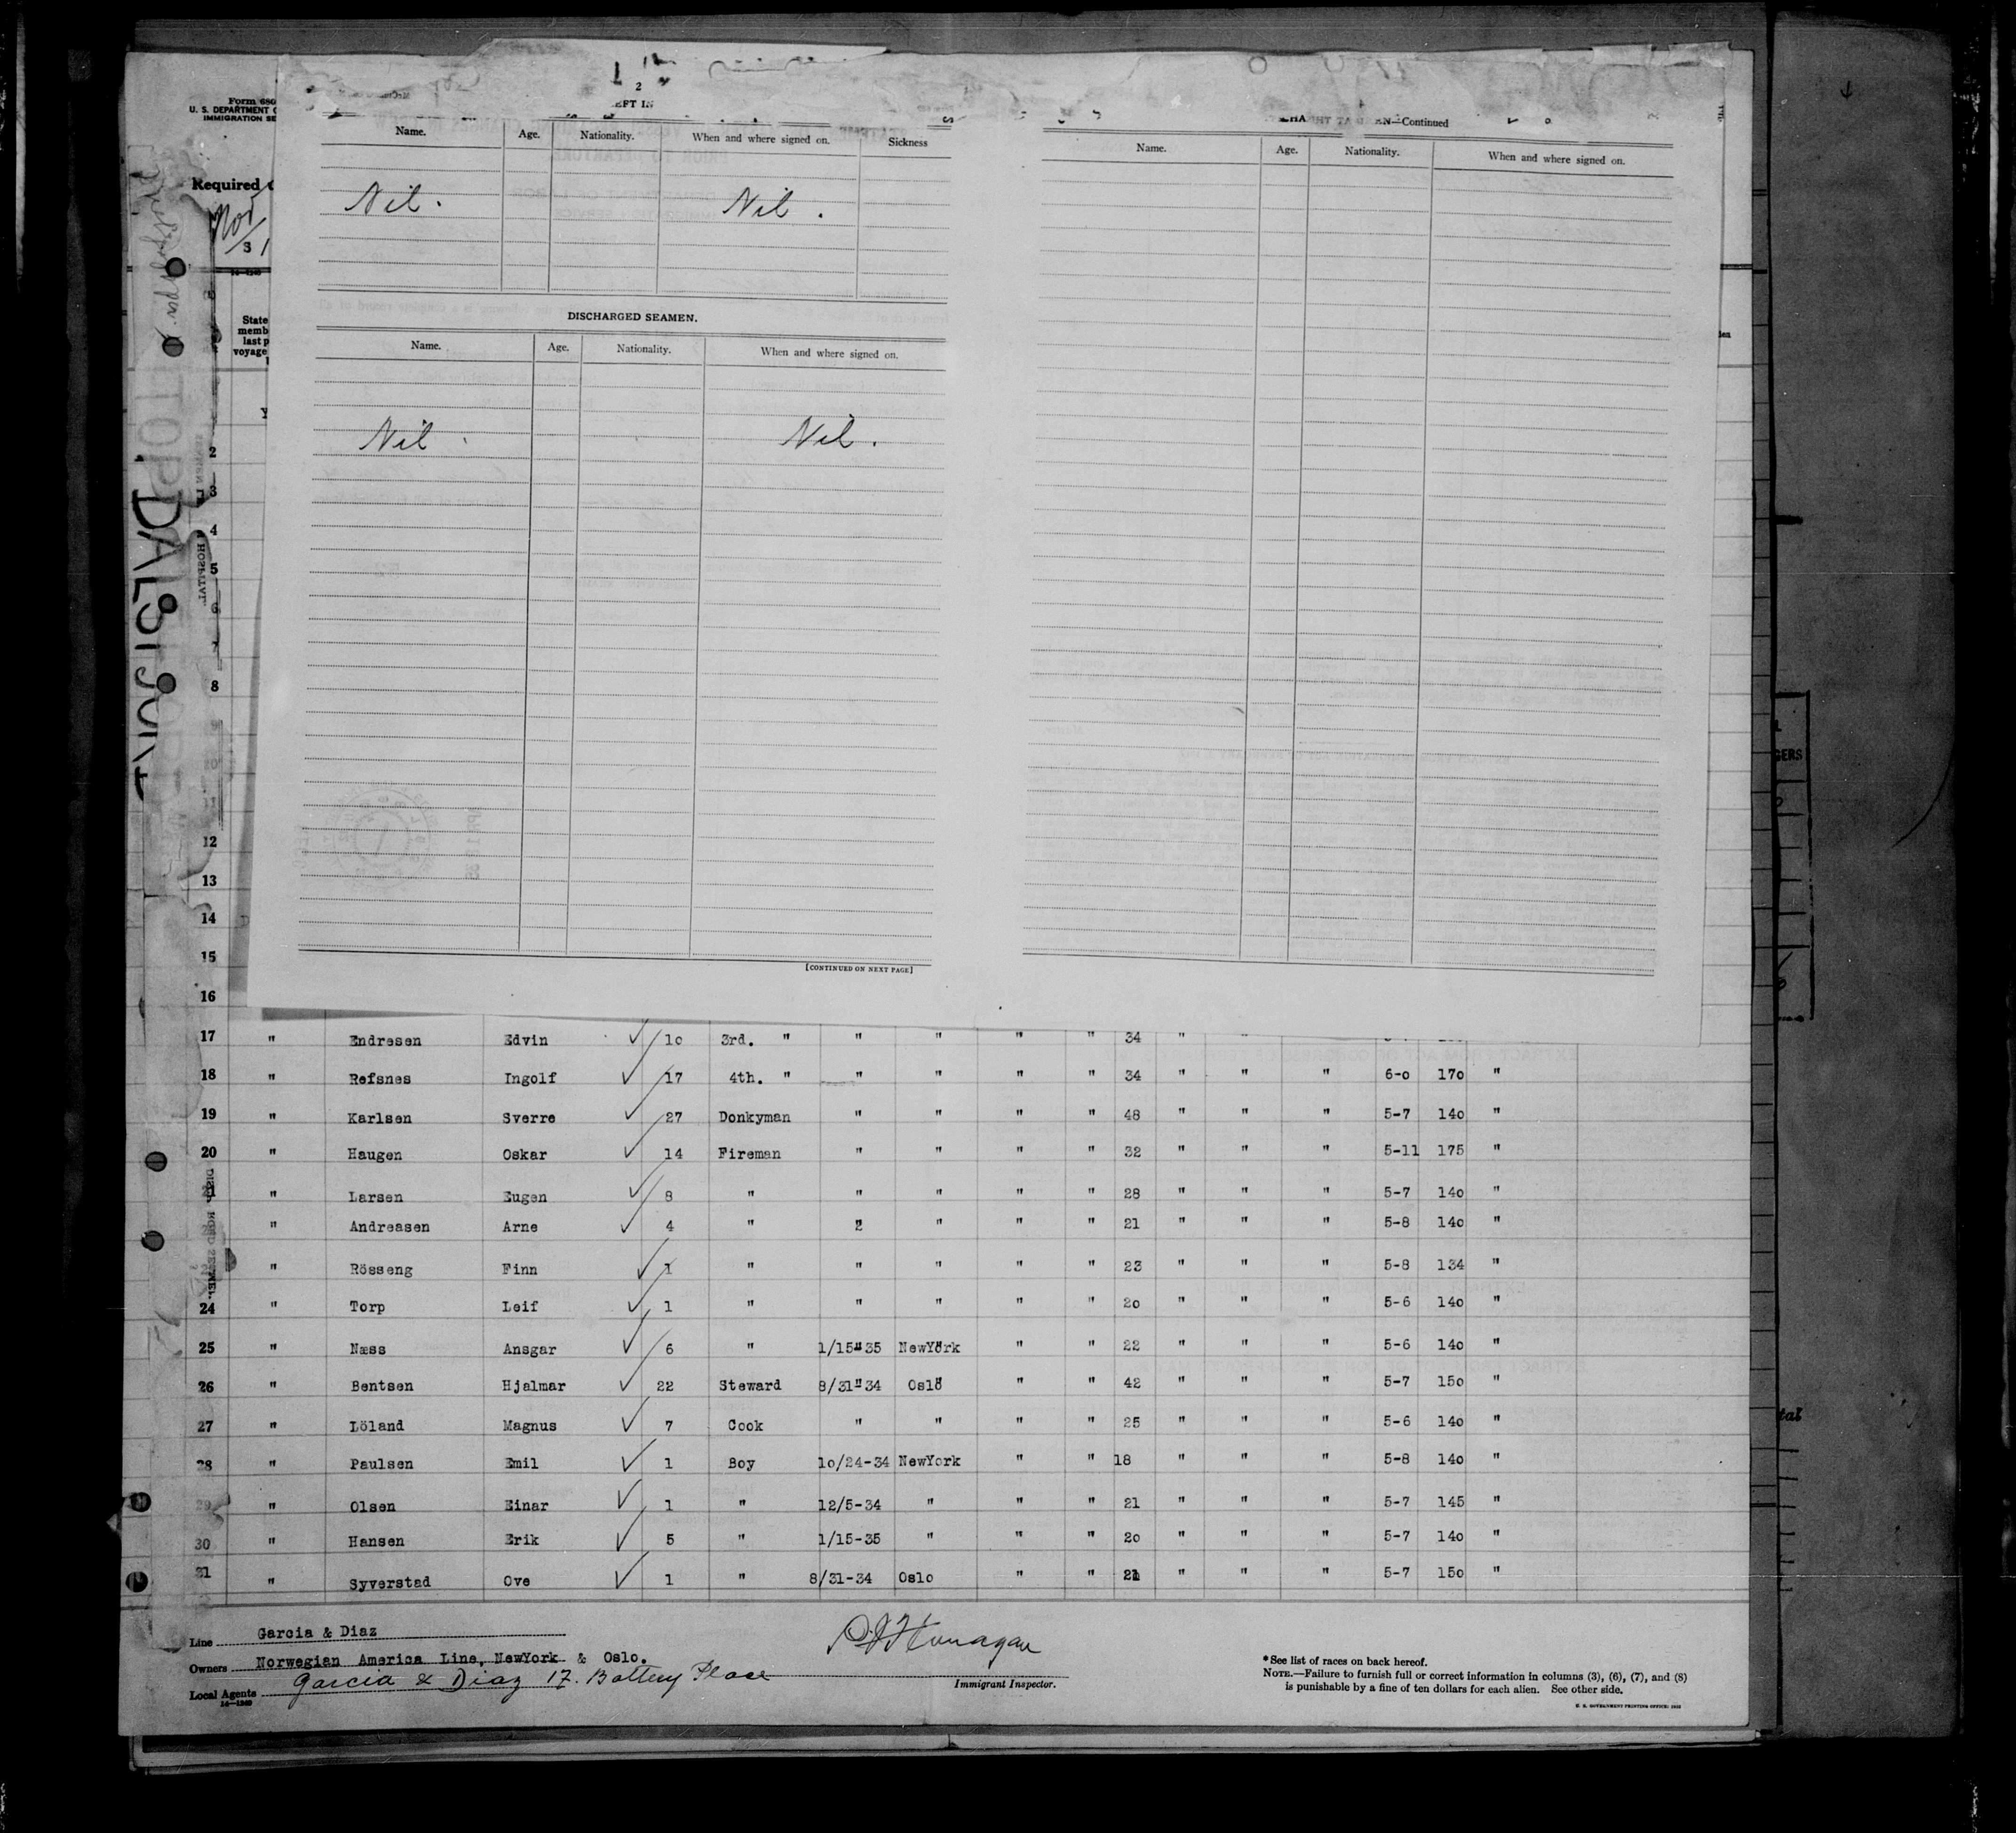 Form 680
U. S. DEPARTMENT O
IMMIGRATION SE
Required
Nor
31
State
memb
last p
voyage
2
EFT IN
Name. Age. Nationality. When and where signed on. Sickness
Nil. Nil.
DISCHARGED SEAMEN.
Name. Age. Nationality. When and where signed on.
Nil Nil.
[CONTINUED ON NEXT PAGE]
EN—Continued
Name. Age. Nationality. When and where signed on.
HOSPITAL
GERS
tal
2
3
4
5
6
7
8
12
13
14
15
16
17 " Endresen Edvin 10 3rd. " " " " " 34 " "
18 " Refsnes Ingolf 17 4th. " " " " " 34 " " " 6-0 170 "
19 " Karlsen Sverre 27 Donkyman " " " " 48 " " " 5-7 140 "
20 " Haugen Oskar 14 Fireman " " " " 32 " " " 5-11 175 "
" Larsen Eugen 8 " " " " " 28 " " " 5-7 140 "
" Andreasen Arne 4 " " " " " 21 " " " 5-8 140 "
" Rösseng Finn 1 " " " " " 23 " " " 5-8 134 "
24 " Torp Leif 1 " " " " " 20 " " " 5-6 140 "
25 " Næss Ansgar 6 " 1/15-35 NewYork " " 22 " " " 5-6 140 "
26 " Bentsen Hjalmar 22 Steward 8/31-34 Oslo " " 42 " " " 5-7 150 "
27 " Löland Magnus 7 Cook " " " " 25 " " " 5-6 140 "
28 " Paulsen Emil 1 Boy 10/24-34 NewYork " " 18 " " " 5-8 140 "
29 " Olsen Einar 1 " 12/5-34 " " " 21 " " " 5-7 145 "
30 " Hansen Erik 5 " 1/15-35 " " " 20 " " " 5-7 140 "
31 " Syverstad Ove 1 " 8/31-34 Oslo " " 21 " " " 5-7 150 "
Line Garcia & Diaz
Owners Norwegian America Line, NewYork & Oslo.
Local Agents Garcia & Diaz 17. Battery Place
14—1240
Immigrant Inspector.
*See list of races on back hereof.
NOTE.—Failure to furnish full or correct information in columns (3), (6), (7), and (8)
is punishable by a fine of ten dollars for each alien. See other side.